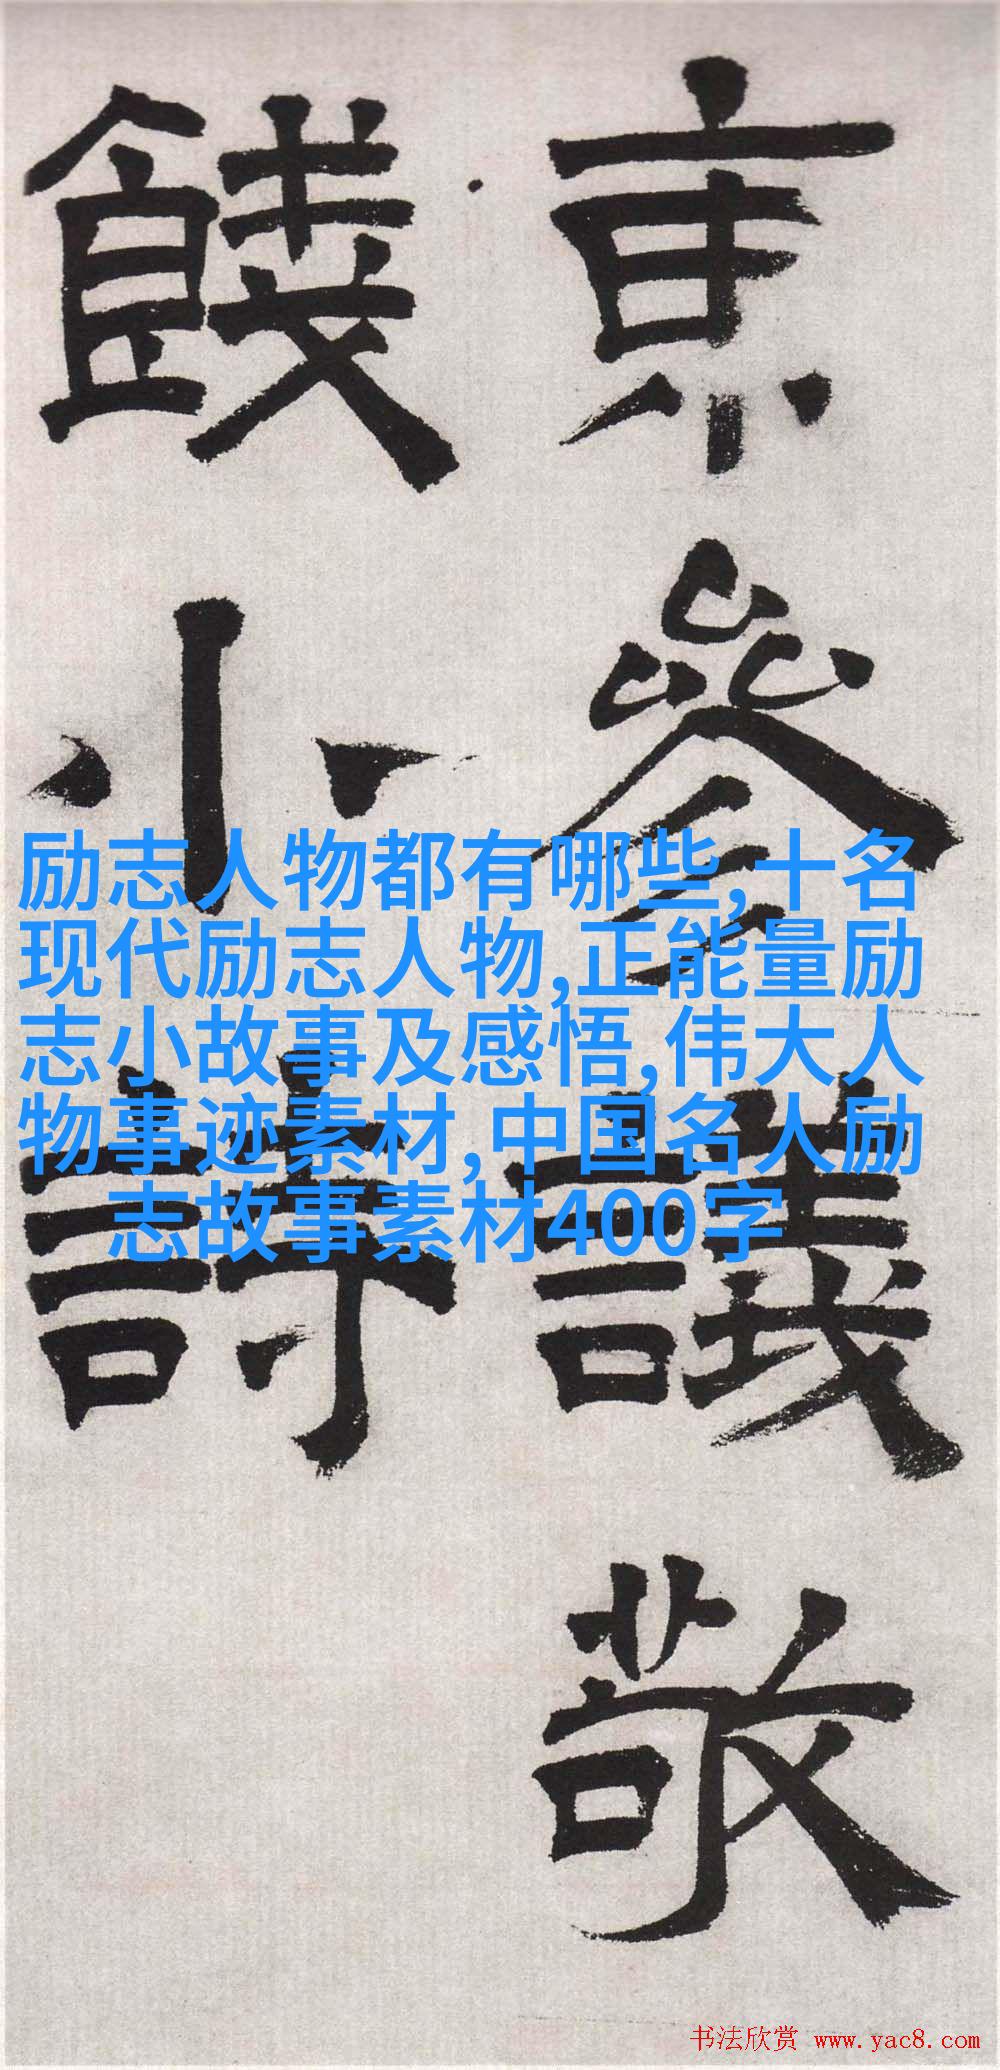 京參議敬
餞小詩
励志人物都有哪些,十名
现代励志人物,正能量励
志小故事及感悟,伟大人
物事迹素材,中国名人励
志故事素材400字
书法欣赏 www.yac8.com